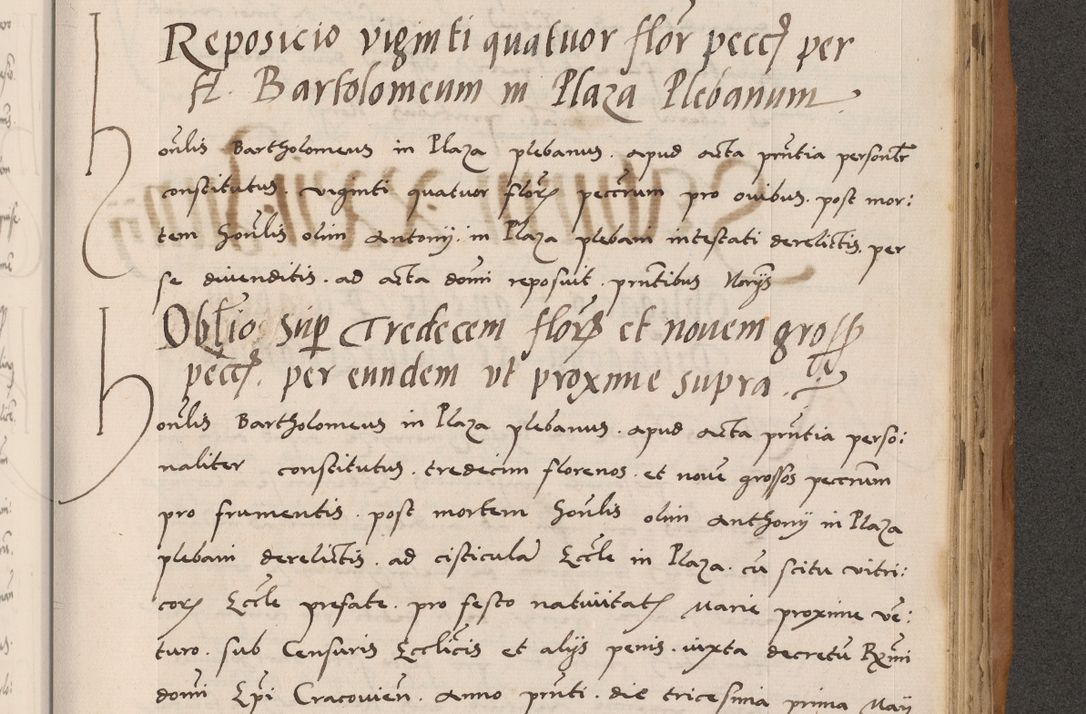 Reposicio viginti quatuor flor pecc per
fl. Bartolomeum in Plaza Plebanum
Honlis Bartholomeus in Plaza plebanus. apud acta pñtia personlr
constitutus. viginti quatuor flor peccrum pro ovibus. post mor:
tem honlis olim Antonij. in Plaza plebani intestati derelictis. per
se divenditis. ad acta domi reposuit. pntibus Norijs
Obllio sup Tredecem flor et novem gross
pecc. per eundem ut proxime supra.
Honlis Bartholomeus in Plaza plebanus. apud acta pñtia perso:
naliter constitutus. tredecim florenos. et nove grossos peccrnum
pro frumentis. post mortem honlis olim Anthonij in Plaza
plebani derelictis. ad cisticula Eccle in Plaza. cu scitu vitri:
cor Eccle prefate. pro festo nativitat Marie proxime ve:
turo. sub Censuris Ecclicis et alijs penis. iuxta decretu Rxmi
domi Epi Cracovien. Anno pñti. die tricesima prima Maij